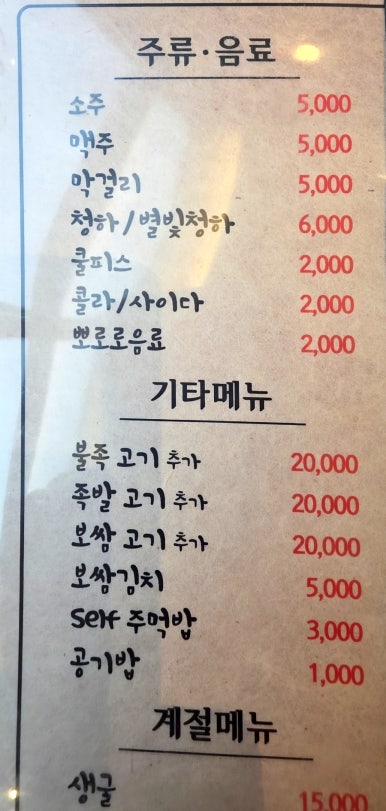 주류·음료
소주 5,000
맥주 5,000
막걸리 5,000
청하/별빛청하 6,000
쿨피스 2,000
콜라/사이다 2,000
뽀로로음료 2,000
기타메뉴
불족 고기 추가 20,000
족발 고기 추가 20,000
보쌈 고기 추가 20,000
보쌈김치 5,000
self 주먹밥 3,000
공기밥 1,000
계절메뉴
생굴 15,000